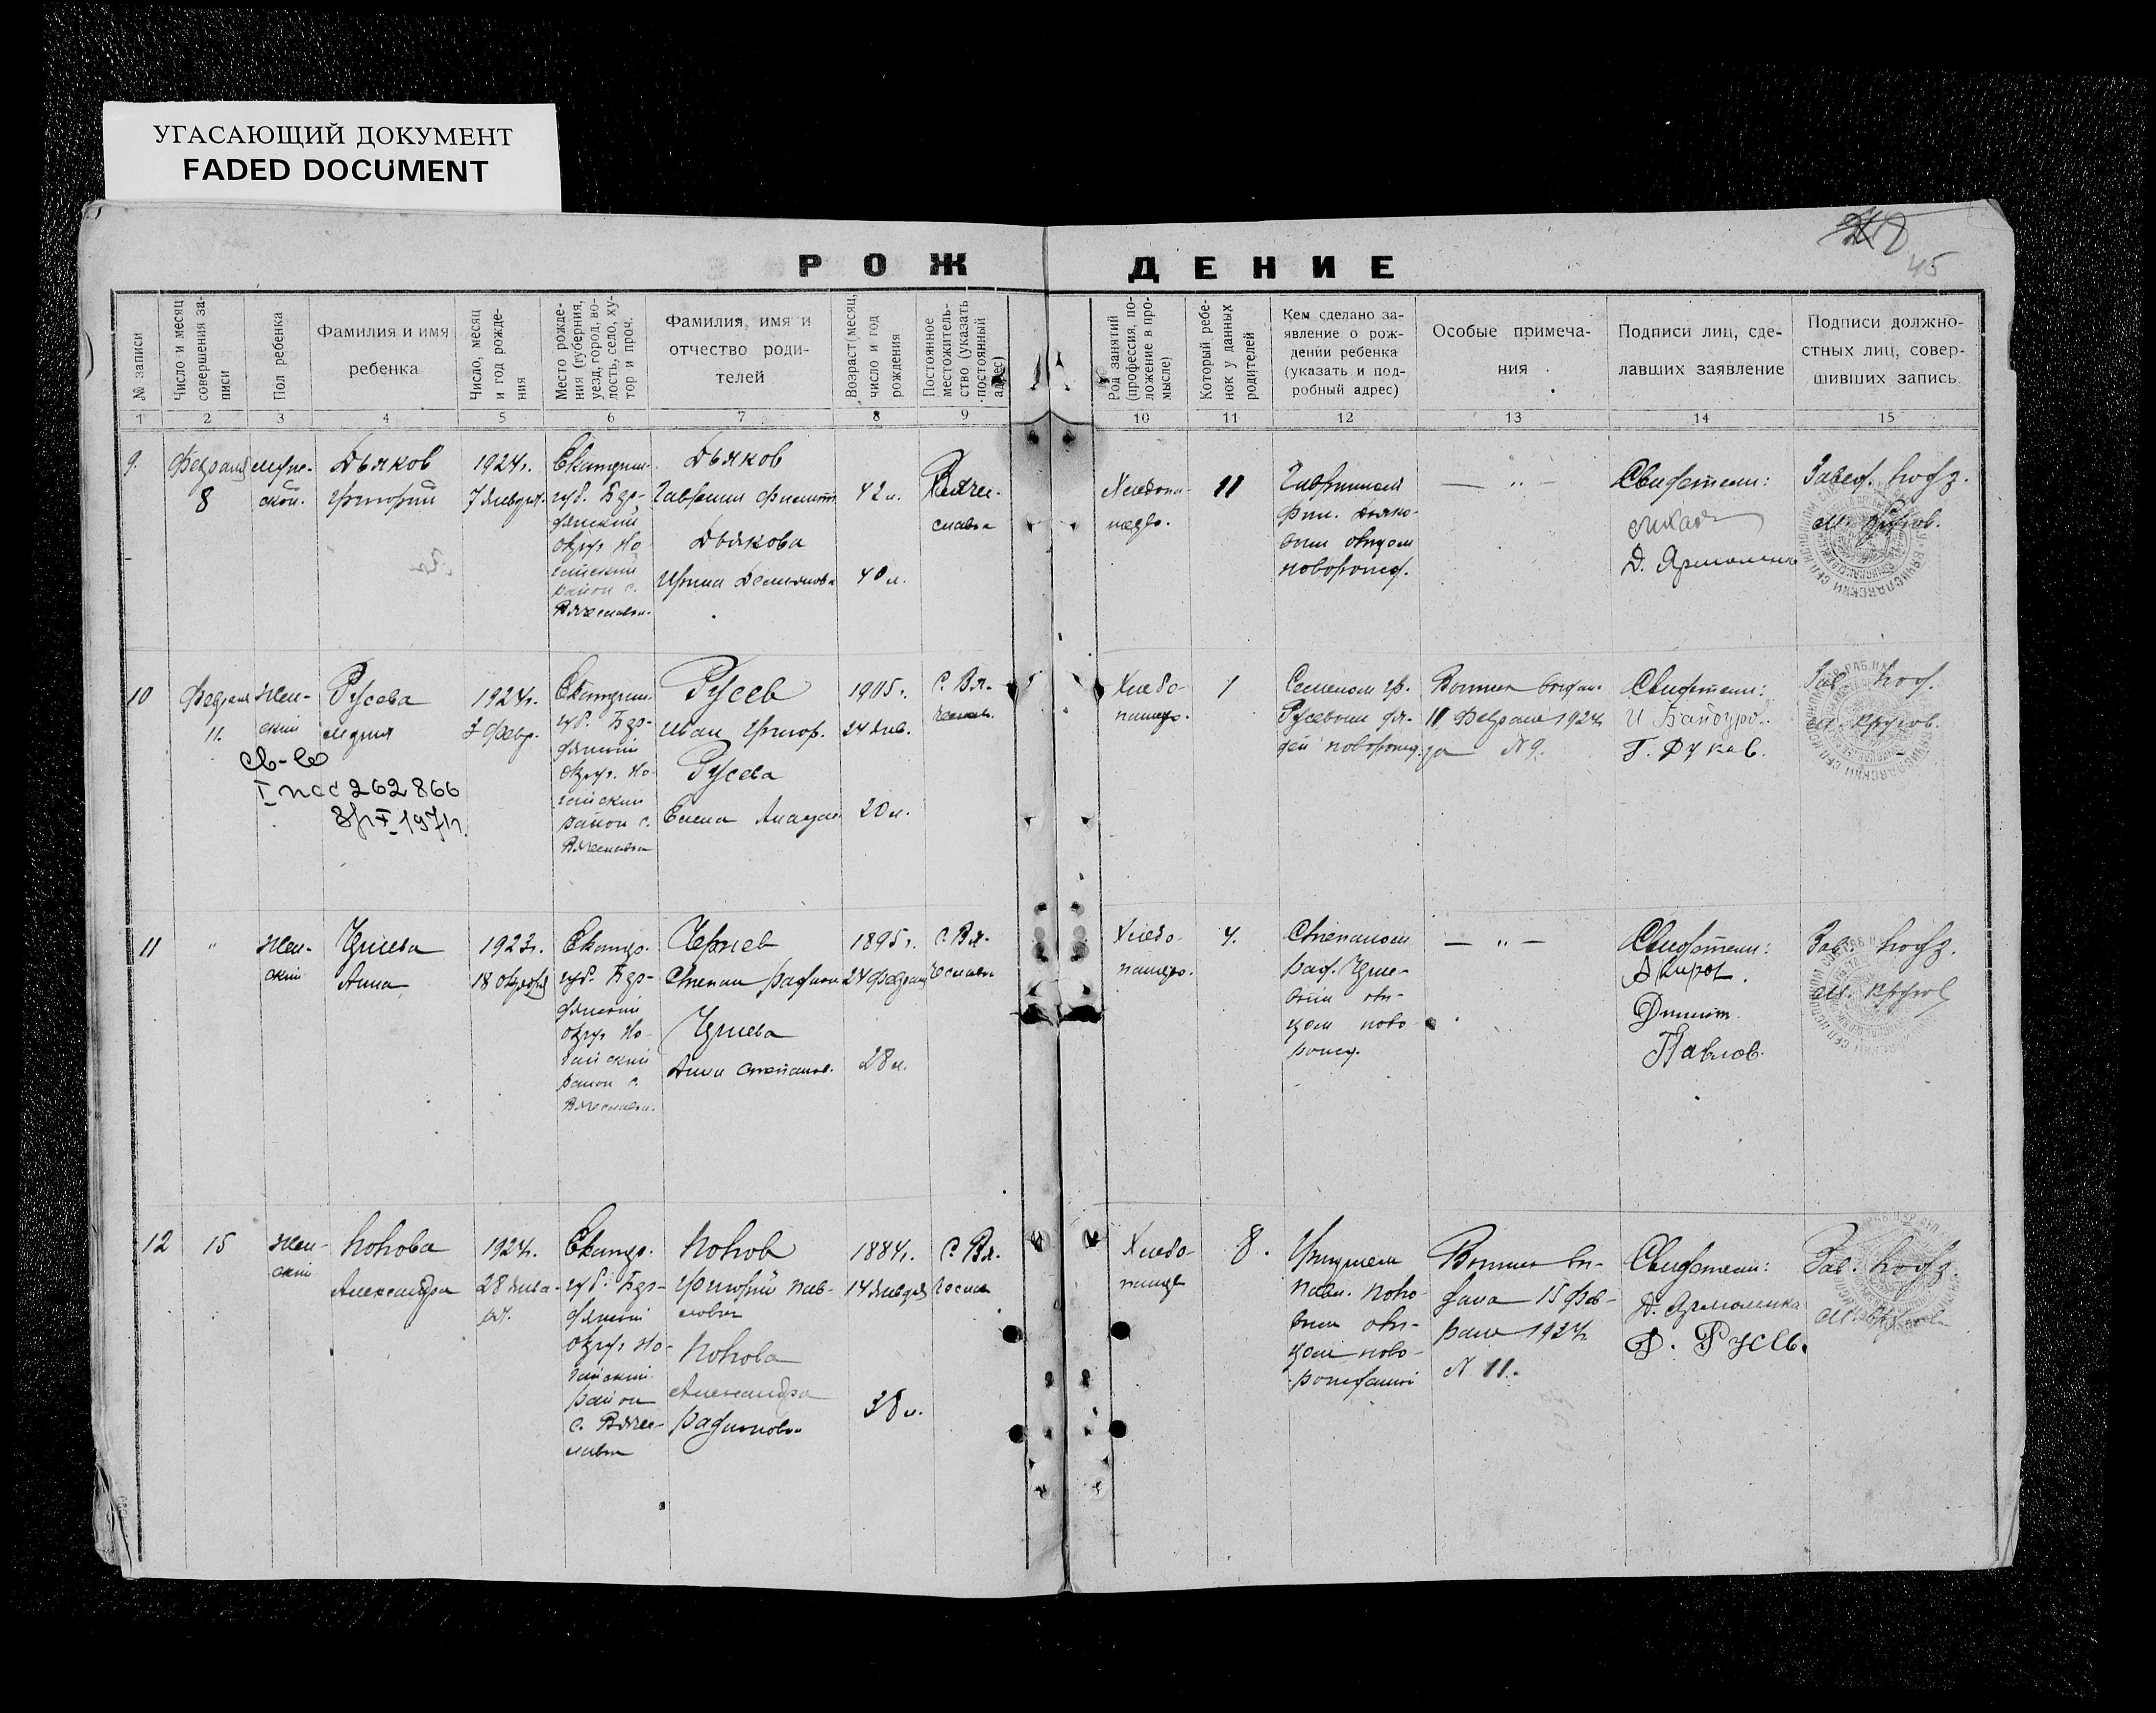 УГАСАЮЩИЙ ДОКУМЕНТ
FADED DOCUMENT
45
РОЖДЕНИЕ
№ записи
Число и месяц
совершения за-
писи
Пол ребенка
Фамилия и имя
ребенка
Число, месяц
и год рожде-
ния
Место рожде-
ния (губерния,
уезд, город, во-
лость, село, ху-
тор и проч.
Фамилия, имя и
отчество роди-
телей
Возраст (месяц,
число и год
рождения
Постоянное
местожитель-
ство (указать
постоянный
адрес)
Род занятий
(профессия, по-
ложение в про-
мысле)
Который ребе-
нок у данных
родителей
Кем сделано за-
явление о рож-
дении ребенка
(указать и под-
робный адрес)
Особые примеча-
ния
Подписи лиц, сде-
лавших заявление
Подписи должно-
стных лиц, совер-
шивших запись.
1 2 3 4 5 6 7 8 9 10 11 12 13 14 15
9.
Февраля
8
муже-
ской.
Дьяков
Григорий
1924г.
7 Января.
Екатерин.
губ. Бер-
дянский
округ Но-
гайский
район с.
Вячеславка.
Дьяков
Гавриил Филипп.
Дьякова
Ирина Демьянова
42 л.
40 л.
Вячес-
лавка
Хлебопа-
шество.
11
Гавриилом
Фил. Дьяко-
вым отцом
новорожд.
— „ —
Свидетели:
Д. Ярмоленко
Завед. подз.
10
Февраля
11.
Жен-
ский
Русева
Мария
св-во
262866
1924г.
7 Февр.
Екатерин.
губ. Бер-
дянский
округ. Но-
гайский
район с.
Вячеславка
Русев
Иван Григор.
Русева
Елена
1905г.
24 Янв.
20 л.
с. Вя-
Хлебо-
пашество.
1
Семеном Гр.
Русевым дя-
дей новорожд.
Выпись выдан.
11 Февраля 1924г.
за № 9.
Свидетели:
Г. Дуков.
Зав. подз.
11
„
Жен-
ский
Чернева
Анна
1923г.
18 Октября
Екатер.
губ. Бер-
дянский
округ Но-
гайский
район с.
Вячеславка.
Чернев
Степан Радион
Чернева
Анна Степанов.
1895г.
24 Февраля
28 л.
с. Вя-
чеславка
Хлебо-
пашество.
4.
Степаном
Рад. Черне-
вым от-
цом ново-
рожд.
— „ —
Свидетели:
Димит.
Павлов.
Зав. подз.
12
15
Жен-
ский
Попова
Александра
1924г.
28 Янва-
ря.
Екатер.
губ. Бер-
дянский
округ Но-
гайский
район
с. Вячес-
лавка
Попов
Григорий Пав-
лович
Попова
Александра
Радионова
1884г.
14 Января
38 л.
с. Вя-
чеслав
Хлебо-
пашец
8.
Григорием
Павл. Попо-
вым от-
цом ново-
рожданной
Выпись вы-
дана 15 Фев-
раля 1924г.
№ 11.
Свидетели:
Д. Ярмоленко
Ф. Русев.
Зав. подз.